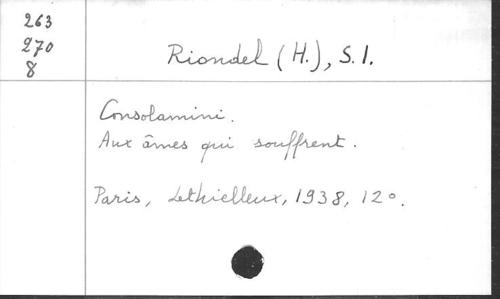 263
270
8
Riondel (H.), S.I.
Consolamini.
Aux âmes qui souffrent.
Paris, Lethielleux, 1938, 12°.